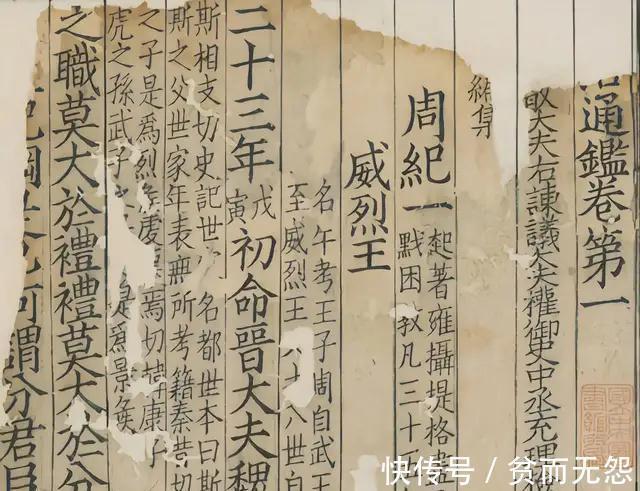 通鑑卷第一
大夫右諫議大夫權御史中丞充理
周紀一 起著雍攝提格
黓困敦凡三十
威烈王
名午考王子周自武王
至威烈王 八十八世自
二十三年 戊寅 初命晉大夫魏
斯相支切史記世 名都世本曰斯
斯之父世家年表無所考籍秦昔切
之子是爲烈矦虔 焉切韓康子
虎之孫武子 是爲景矦
之職莫大於禮禮莫大於分
綱是也何謂分君臣
快传号/贫而无怨